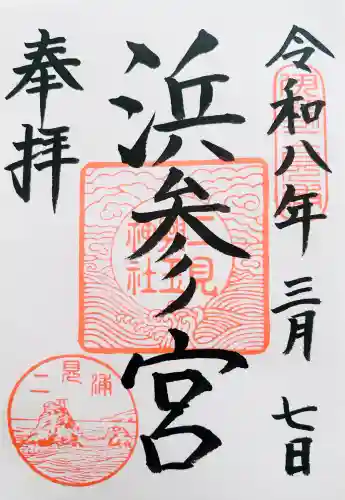 令和八年三月七日
浜参り宮
奉拝
二見
興玉
神社
二見浦